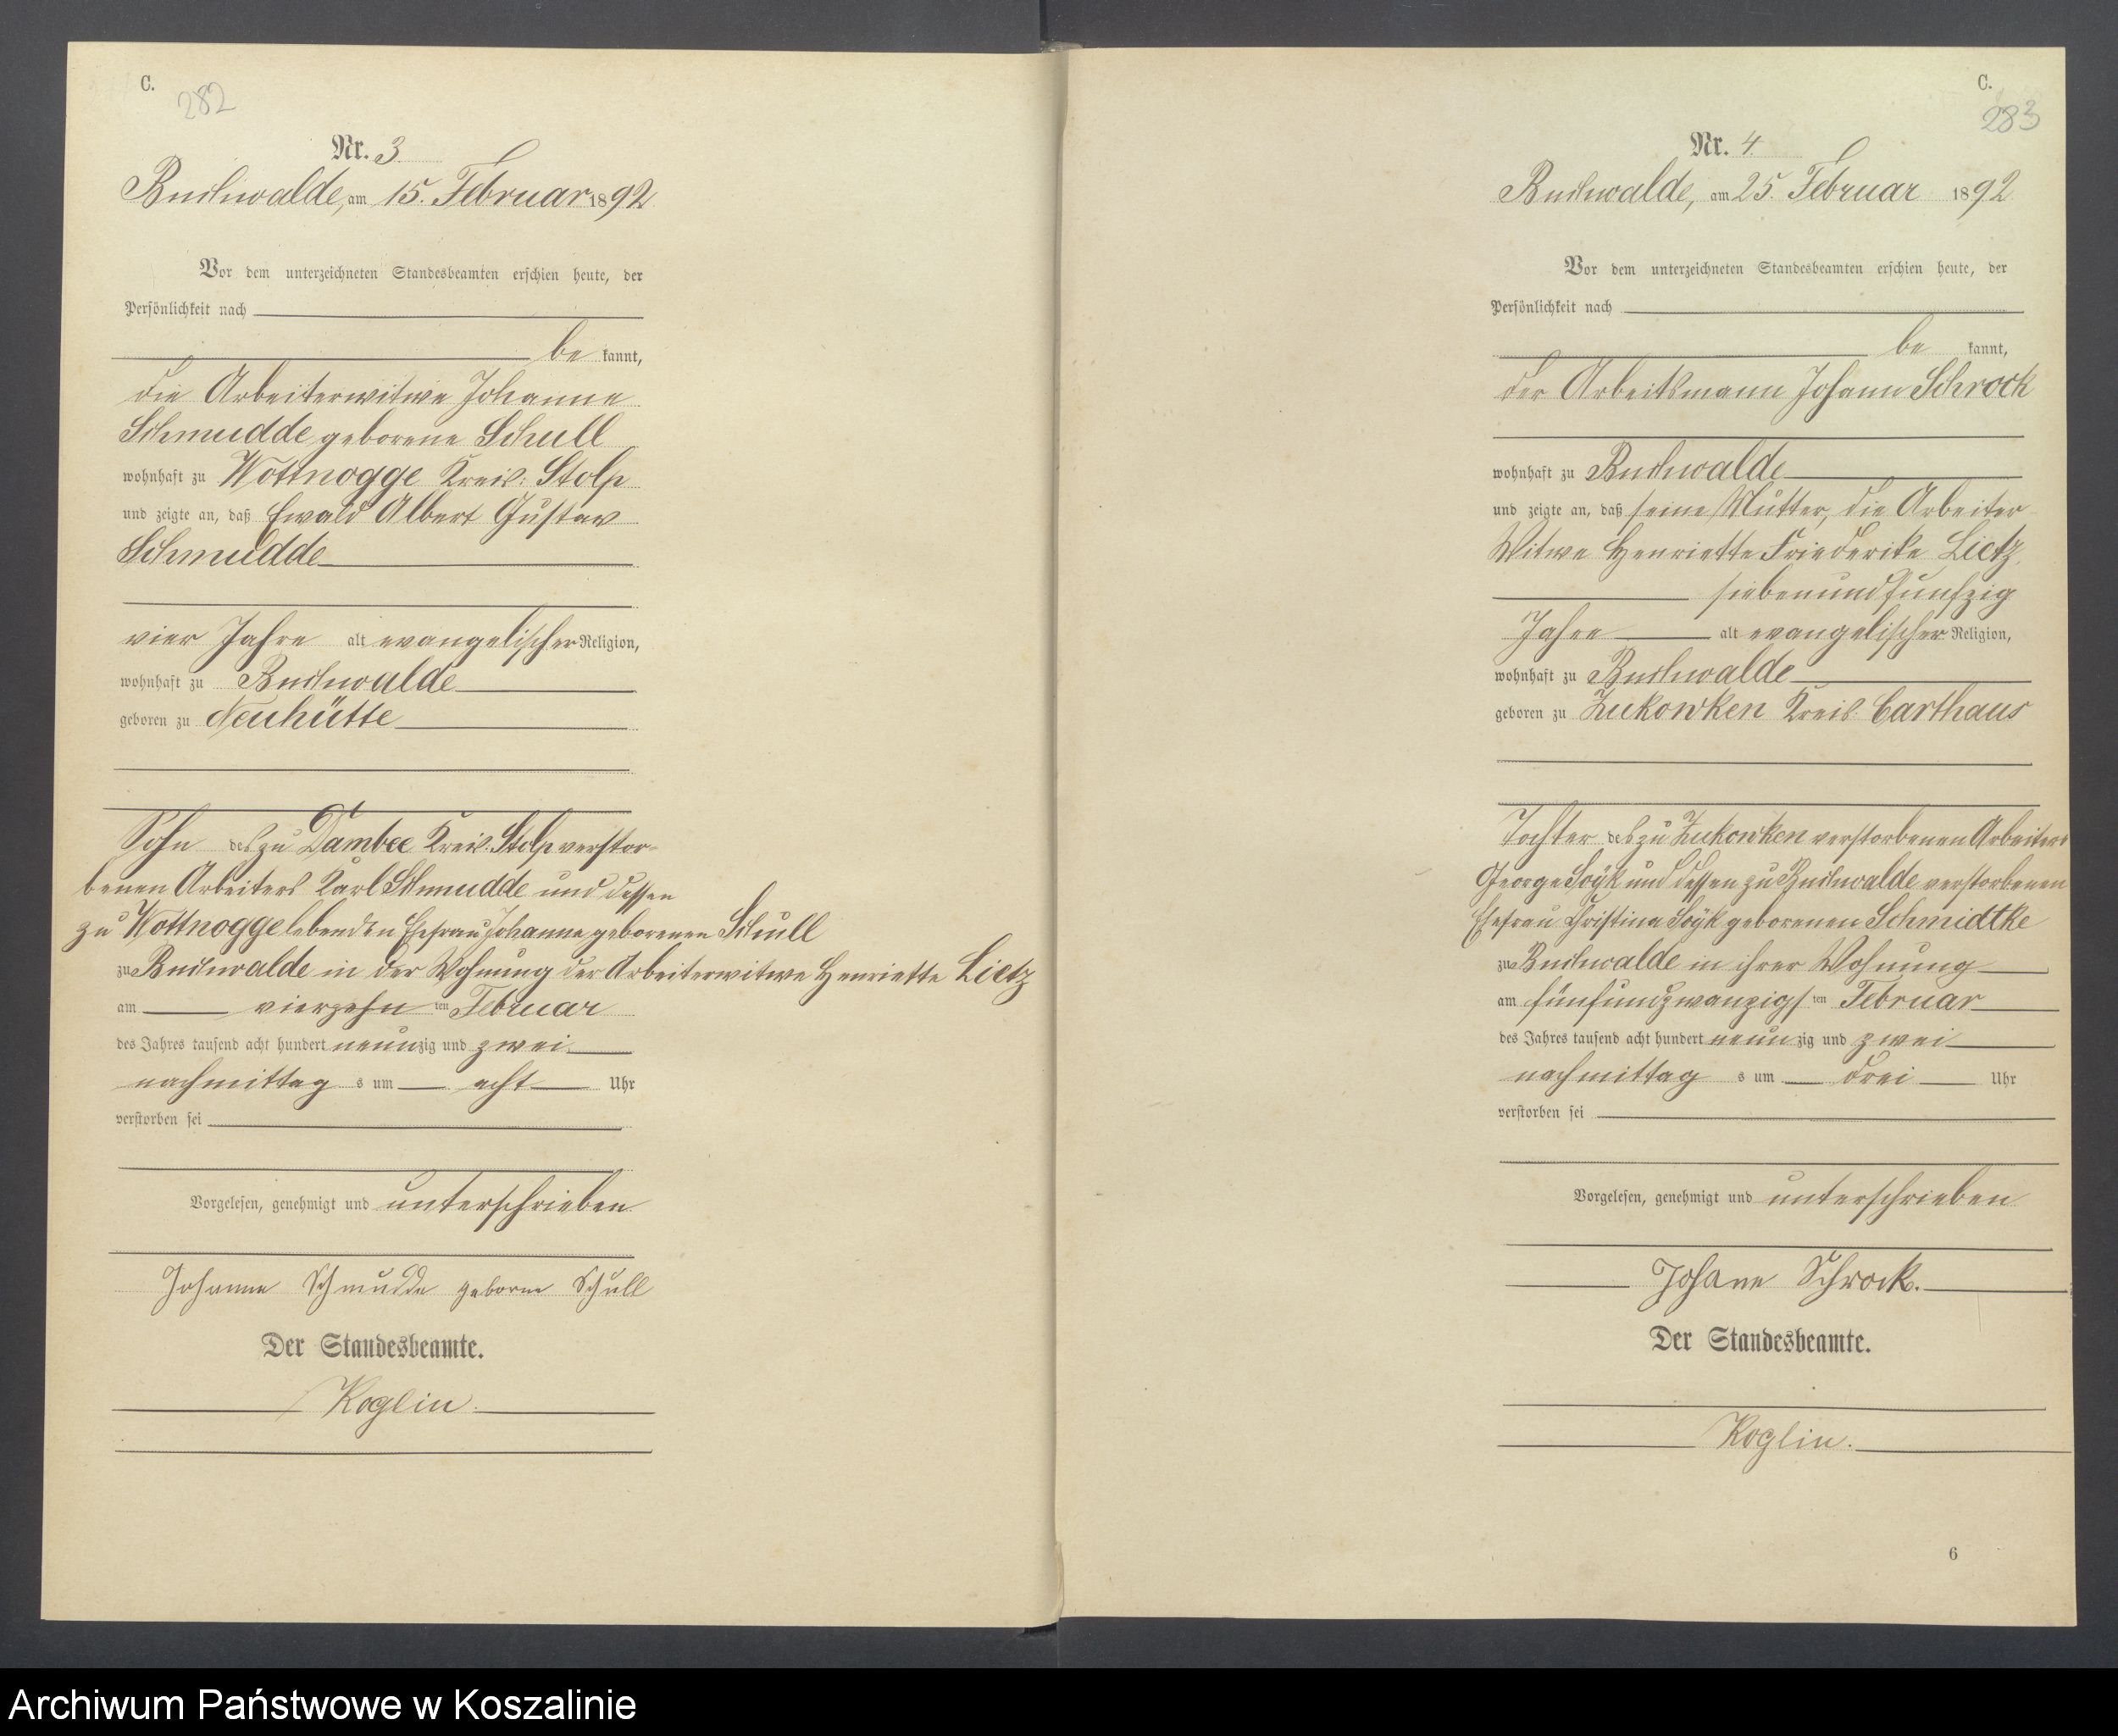 C.
282
Nr. 3.
Buchwalde, am 15. Februar 1892.
Vor dem unterzeichneten Standesbeamten erschien heute, der
Persönlichkeit nach
be kannt,
die Arbeiterwitwe Johanne
Schmudde geborene Schull
wohnhaft zu Wottnogge Kreis: Stolp
und zeigte an, daß Ewald Albert Gustav
Schmudde
vier Jahre alt evangelischer Religion,
wohnhaft zu Buchwalde
geboren zu Neuhütte
Sohn des zu Dambee Kreis: Stolp verstor-
benen Arbeiters Karl Schmudde und dessen
zu Wottnogge lebenden Ehefrau Johanne geborenen Schull
zu Buchwalde in der Wohnung der Arbeiterwitwe Henriette Lietz
am vierzehn ten Februar
des Jahres tausend acht hundert neunzig und zwei
nachmittag s um acht Uhr
verstorben sei
Vorgelesen, genehmigt und unterschrieben
Johanne Schmudde geborne Schull
Der Standesbeamte.
Koglin.
C.
283
Nr. 4.
Buchwalde, am 25. Februar 1892
Vor dem unterzeichneten Standesbeamten erschien heute, der
Persönlichkeit nach
be kannt,
der Arbeitsmann Johann Schrock
wohnhaft zu Buchwalde
und zeigte an, daß seine Mutter, die Arbeiter
Witwe Henriette Friederike Lietz,
siebenundfunfzig
Jahre alt evangelischer Religion,
wohnhaft zu Buchwalde
geboren zu Zukowken Kreis: Carthaus
Tochter des zu Zukowken verstorbenen Arbeiters
George Soÿk und dessen zu Buchwalde verstorbenen
Ehefrau Christina Soÿk geborenen Schmidtke
zu Buchwalde in ihrer Wohnung
am fünfundzwanzigs ten Februar
des Jahres tausend acht hundert neun zig und zwei
nachmittag s um drei Uhr
verstorben sei
Vorgelesen, genehmigt und unterschrieben
Johann Schrock.
Der Standesbeamte.
Koglin.
6
Archiwum Państwowe w Koszalinie